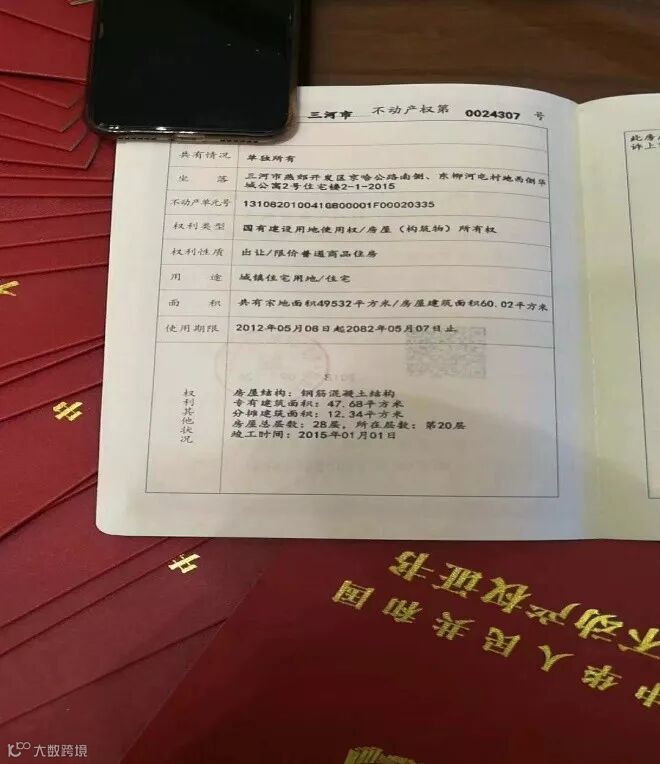 三河市 不动产权第 0024307 号
共有情况 单独所有
坐落 三河市燕郊开发区京哈公路南侧、东柳河屯村地西侧华
城公寓2号住宅楼2-1-2015
不动产单元号 131082010041GB00001F00020335
权利类型 国有建设用地使用权/房屋（构筑物）所有权
权利性质 出让/限价普通商品住房
用途 城镇住宅用地/住宅
面积 共有宗地面积49532平方米/房屋建筑面积60.02平方米
使用期限 2012年05月08日起2082年05月07日止
权利其他状况
房屋结构：钢筋混凝土结构
专有建筑面积：47.68平方米
分摊建筑面积：12.34平方米
房屋总层数：28层，所在层数：第20层
竣工时间：2015年01月01日
此房
诉上
书
书
中华人民共和国
不动产权证书
大数跨境